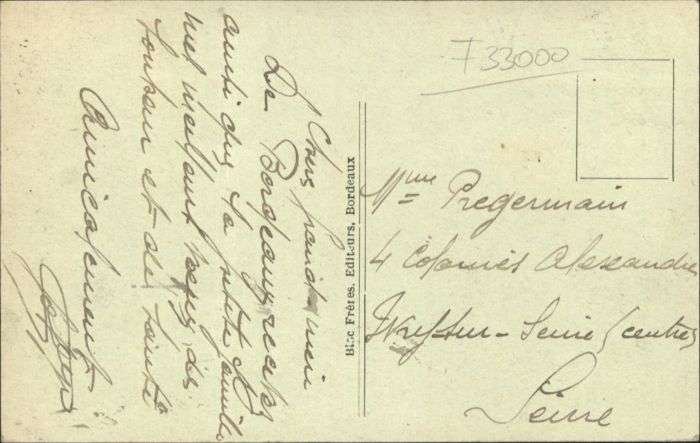 F 33000
Chers grand ami
De Bordeaux recevez
ainsi que la petite famille
mes meilleurs
et de Santé
Amicalement
Bloc Frères, Editeurs, Bordeaux
Mme Pregermain
4 Alexandre
Ivry-sur-Seine (centre)
Seine